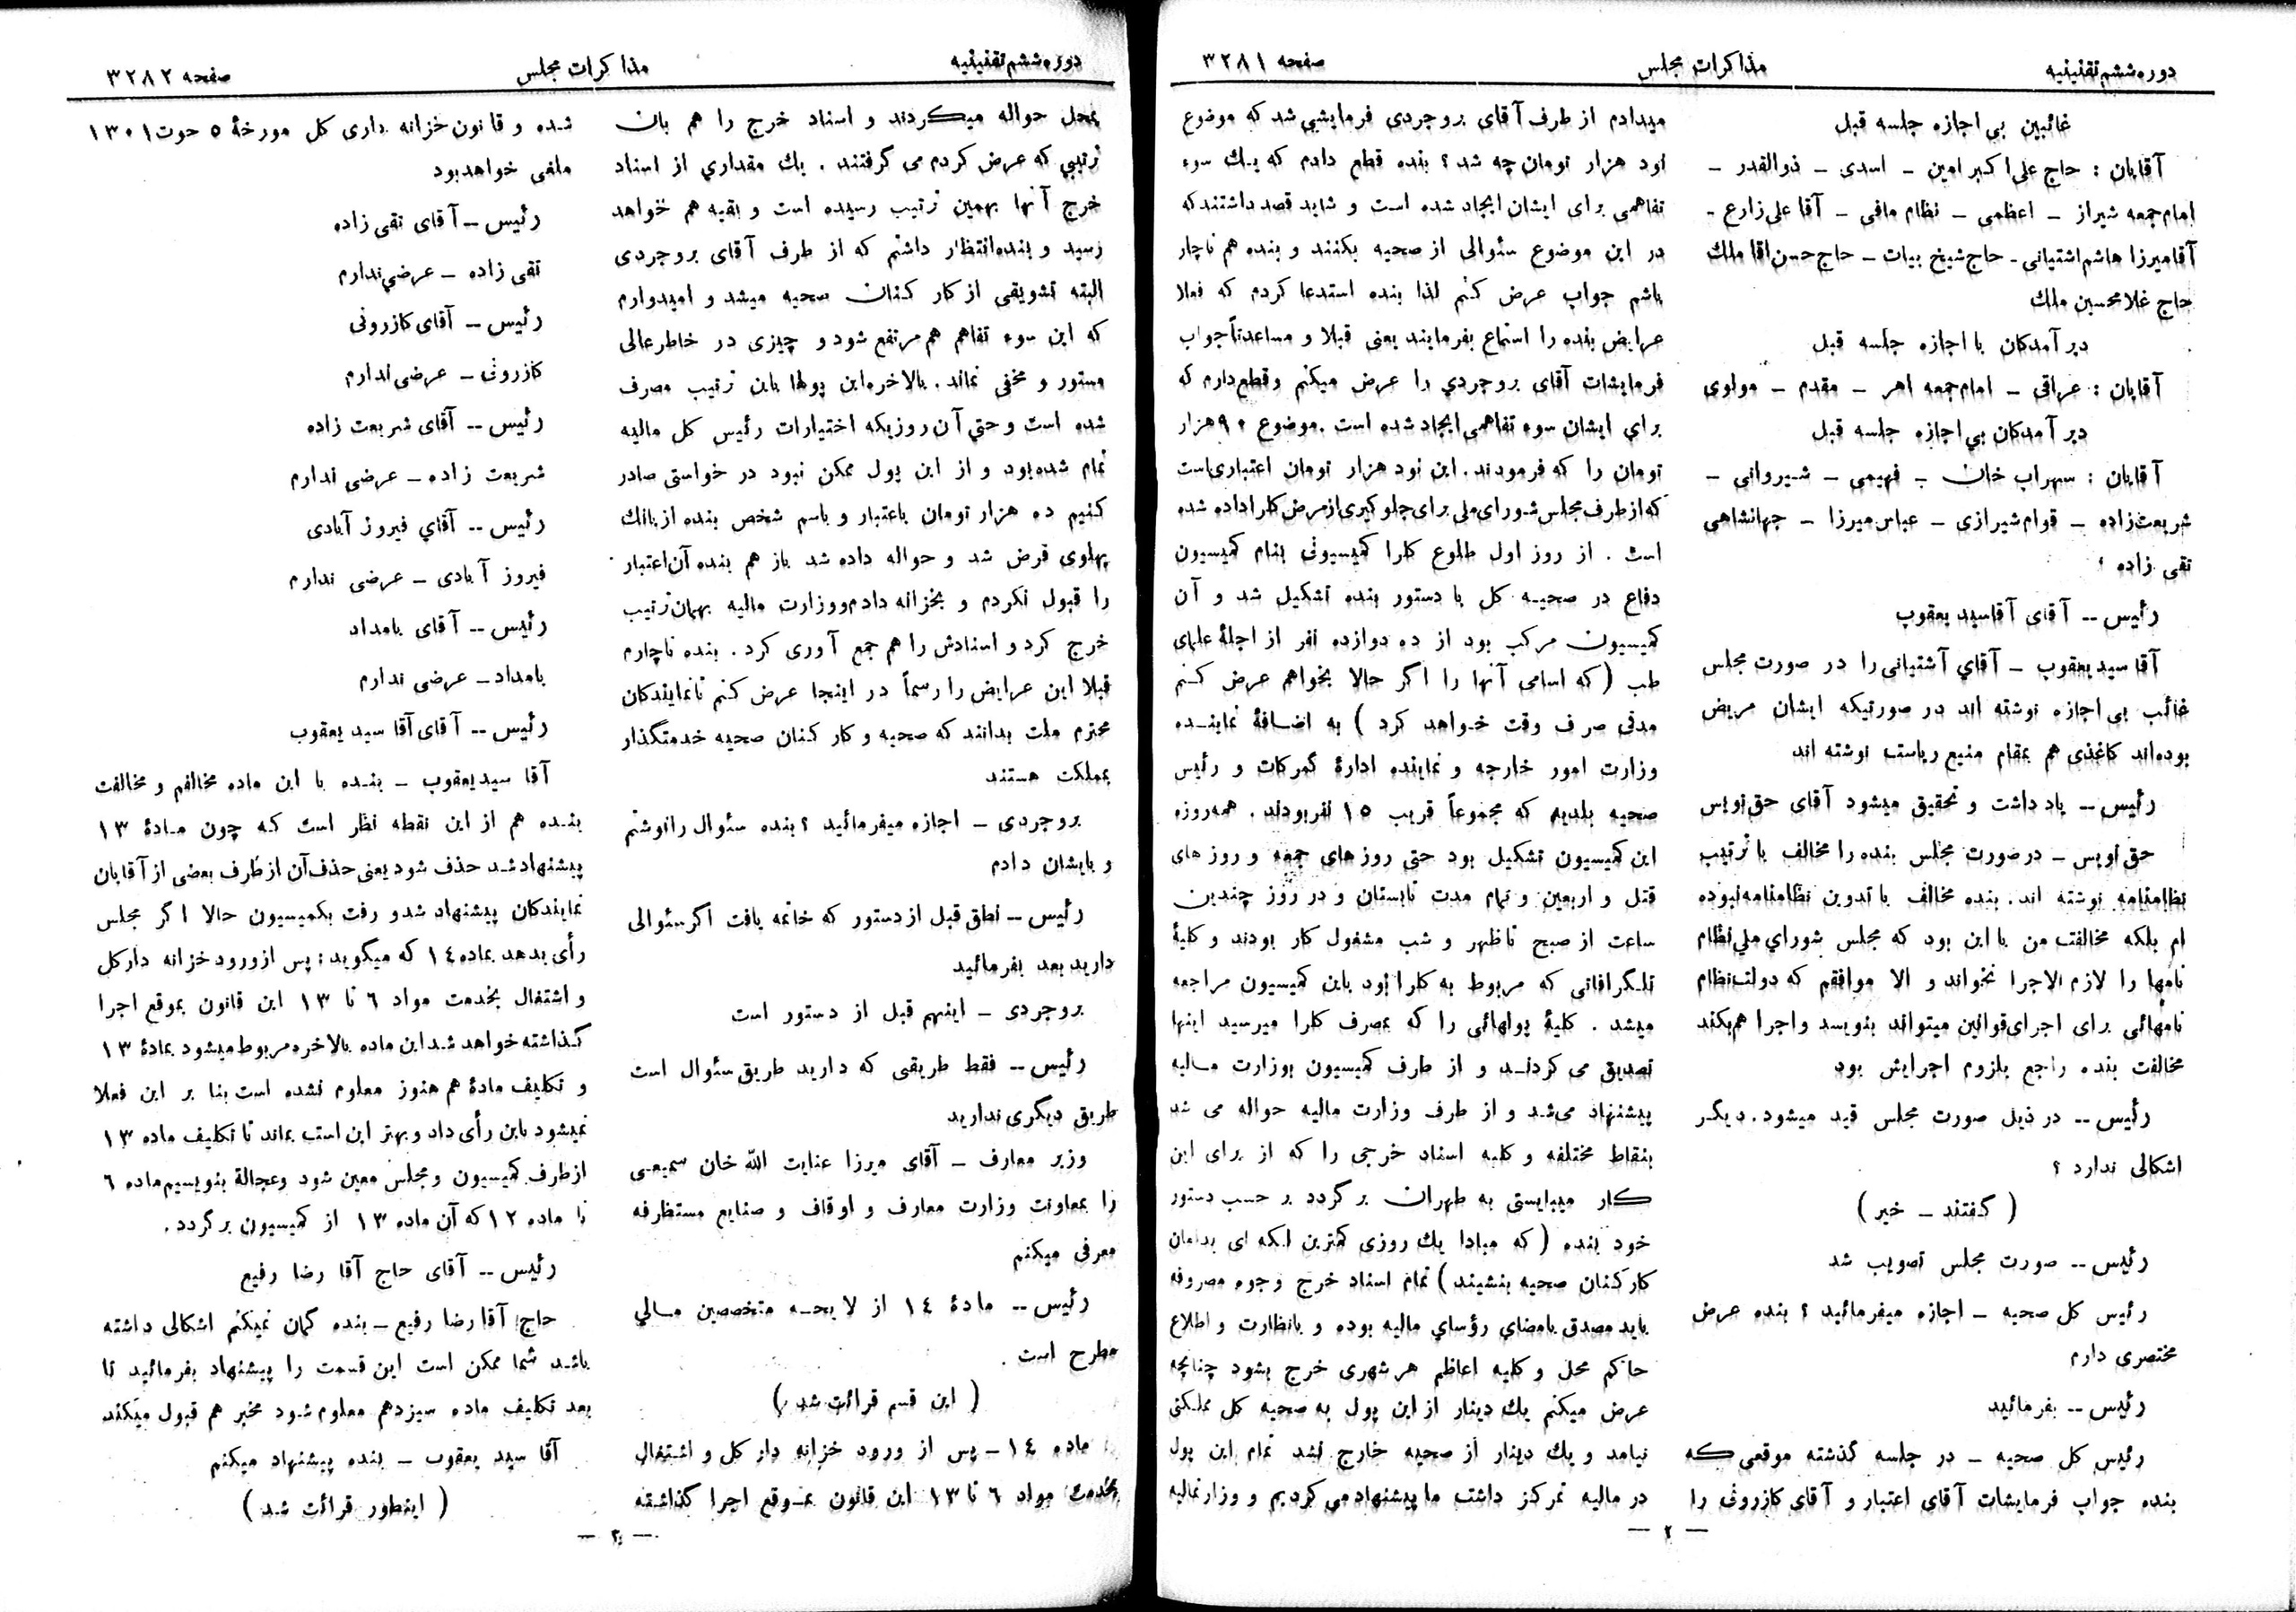 دوره ششم تقنینیه
مذاکرات مجلس
صفحه ۳۲۸۱
غائبین بی اجازه جلسه قبل
آقایان : حاج علی اکبر امین ـ اسدی ـ ذوالقدر ـ
امام جمعه شیراز ـ اعظمی ـ نظام مافی ـ آقا علی زارع ـ
آقا میرزا هاشم اشتیانی ـ حاج شیخ بیات ـ حاج حسن اقا ملك
حاج غلامحسین ملك
دیر آمدکان با اجازه جلسه قبل
آقایان : عراقی ـ امام جمعه اهر ـ مقدم ـ مولوی
دیر آمدکان بی اجازه جلسه قبل
آقایان : سهراب خان ـ فهیمی ـ شیروانی ـ
شریعت زاده ـ قوام شیرازی ـ عباس میرزا ـ جهانشاهی
تقی زاده
رئیس -- آقای آقاسید یعقوب
آقا سید یعقوب ـ آقاي آشتیانی را در صورت مجلس
غائب بی اجازه نوشته اند در صورتیکه ایشان مریض
بوده‌اند کاغذی هم بمقام منیع ریاست نوشته اند
رئیس -- یاد داشت و تحقیق میشود آقای حق نویس
حق نویس ـ در صورت مجلس بنده را مخالف با ترتیب
نظامنامه نوشته اند. بنده مخالف با تدوین نظامنامه نبوده
ام بلکه مخالفت من با این بود که مجلس شوراي ملي نظام
نامها را لازم الاجرا نخواند و الا موافقم که دولت نظام
نامهائی برای اجرای قوانین میتواند بنویسد و اجرا هم بکند
مخالفت بنده راجع بلزوم اجرایش بود
رئیس -- در ذیل صورت مجلس قید میشود. دیگر
اشکالی ندارد ؟
( گفتند ـ خیر )
رئیس -- صورت مجلس تصویب شد
رئیس کل صحیه ـ اجازه میفرمائید ؟ بنده عرض
مختصری دارم
رئیس -- بفرمائید
رئیس کل صحیه ـ در جلسه گذشته موقعی که
بنده جواب فرمایشات آقای اعتبار و آقای کازرونی را
میدادم از طرف آقای بروجردی فرمایشی شد که موضوع
نود هزار تومان چه شد ؟ بنده قطع دادم که یك سوء
تفاهمی برای ایشان ایجاد شده است و شاید قصد داشتند که
در این موضوع سئوالی از صحیه بکنند و بنده هم ناچار
باشم جواب عرض کنم لذا بنده استدعا کردم که فعلا
عرایض بنده را استماع بفرمایند یعنی قبلا و مساعدتاً جواب
فرمایشات آقای بروجردي را عرض میکنم و قطع دارم که
براي ایشان سوء تفاهمی ایجاد شده است . موضوع ۹۰ هزار
تومان را که فرمودند. این نود هزار تومان اعتباری است
که از طرف مجلس شورای ملی برای جلوگیری از مرض کلرا داده شده
است . از روز اول طلوع کلرا کمیسیونی بنام کمیسیون
دفاع در صحیه کل با دستور بنده تشکیل شد و آن
کمیسیون مرکب بود از ده دوازده نفر از اجلۀ علمای
طب (که اسامی آنها را اگر حالا بخواهم عرض کنم
مدتی صرف وقت خواهد کرد ) به اضافۀ نماینده
وزارت امور خارجه و نماینده ادارۀ گمرکات و رئیس
صحیه بلدیه که مجموعاً قریب ۱۵ نفر بودند. همه روزه
این کمیسیون تشکیل بود حتی روز های جمعه و روز های
قتل و اربعین و تمام مدت تابستان و در روز چندین
ساعت از صبح تا ظهر و شب مشغول کار بودند و کلیۀ
تلگرافاتی که مربوط به کلرا بود باین کمیسیون مراجعه
میشد . کلیۀ پولهائی را که بمصرف کلرا میرسید اینها
تصدیق می کردند و از طرف کمیسیون بوزارت مالیه
پیشنهاد می‌شد و از طرف وزارت مالیه حواله می شد
بنقاط مختلفه و کلیه اسناد خرجی را که از برای این
کار میبایستی به طهران بر گردد بر حسب دستور
خود بنده ( که مبادا یك روزی کمترین لکه ای بدامان
کارکنان صحیه بنشیند ) تمام اسناد خرج وجوه مصروفه
باید مصدق بامضاي رؤساي مالیه بوده و بانظارت و اطلاع
حاکم محل و کلیه اعاظم هر شهری خرج بشود چنانچه
عرض میکنم یك دینار از این پول به صحیه کل مملکتی
نیامد و یك دینار از صحیه خارج نشد تمام این پول
در مالیه تمرکز داشت ما پیشنهاد می کردیم و وزارتمالیه
— ۲ —
دوره ششم تقنینیه
مذاکرات مجلس
صفحه ۳۲۸۲
بمحل حواله میکردند و اسناد خرج را هم بان
ترتیبي که عرض کردم می گرفتند . یك مقداري از اسناد
خرج آنها بهمین ترتیب رسیده است و بقیه هم خواهد
رسید و بنده انتظار داشتم که از طرف آقای بروجردی
البته تشویقی از کار کنان صحیه میشد و امیدوارم
که این سوء تفاهم هم مرتفع شود و چیزی در خاطر عالی
مستور و مخفی نماند. بالاخره این پولها باین ترتیب مصرف
شده است و حتي آن روزیکه اختیارات رئیس کل مالیه
تمام شده بود و از این پول ممکن نبود در خواستی صادر
کنیم ده هزار تومان باعتبار و باسم شخص بنده از بانك
پهلوی قرض شد و حواله داده شد باز هم بنده آن اعتبار
را قبول نکردم و بخزانه دادم و وزارت مالیه بهمان ترتیب
خرج کرد و اسنادش را هم جمع آوری کرد . بنده ناچارم
قبلا این عرایض را رسماً در اینجا عرض کنم تا نمایندکان
محترم ملت بدانند که صحیه و کار کنان صحیه خدمتگذار
بمملکت هستند
بروجردی ـ اجازه میفرمائید ؟ بنده سئوال را نوشتم
و بایشان دادم
رئیس -- نطق قبل از دستور که خاتمه یافت اگر سئوالی
دارید بعد بفرمائید
بروجردی ـ اینهم قبل از دستور است
رئیس -- فقط طریقی که دارید طریق سئوال است
طریق دیگری ندارید
وزیر معارف ـ آقای میرزا عنایت الله خان سمیعی
را بمعاونت وزارت معارف و اوقاف و صنایع مستظرفه
معرفی میکنم
رئیس -- مادۀ ۱٤ از لایحه متخصصین مالي
مطرح است .
( این قسم قرائت شد )
ماده ۱٤ ـ پس از ورود خزانه دار کل و اشتغال
بخدمت مواد ٦ تا ۱۳ این قانون بموقع اجرا گذاشته
شده و قانون خزانه داری کل مورخۀ ۵ حوت ۱۳۰۱
ملغی خواهد بود
رئیس -- آقای تقی زاده
تقی زاده ـ عرضي ندارم
رئیس -- آقای کازرونی
کازرونی ـ عرضی ندارم
رئیس -- آقای شریعت زاده
شریعت زاده ـ عرضی ندارم
رئیس -- آقاي فیروز آبادی
فیروز آبادی ـ عرضی ندارم
رئیس -- آقای بامداد
بامداد ـ عرضی ندارم
رئیس -- آقای آقا سید یعقوب
آقا سید یعقوب ـ بنده با این ماده مخالفم و مخالفت
بنده هم از این نقطه نظر است که چون مادۀ ۱۳
پیشنهاد شد حذف شود یعنی حذف آن از طرف بعضی از آقایان
نمایندکان پیشنهاد شد و رفت بکمیسیون حالا اگر مجلس
رأی بدهد بماده ۱٤ که میگوید : پس از ورود خزانه دار کل
و اشتغال بخدمت مواد ٦ تا ۱۳ این قانون بموقع اجرا
گذاشته خواهد شد این ماده بالاخره مربوط میشود بمادۀ ۱۳
و تکلیف مادۀ هم هنوز معلوم نشده است بنا بر این فعلا
نمیشود باین رأی داد و بهتر این است بماند تا تکلیف ماده ۱۳
از طرف کمیسیون و مجلس معین شود و عجالة بنویسیم ماده ٦
تا ماده ۱۲ که آن ماده ۱۳ از کمیسیون برگردد.
رئیس -- آقای حاج آقا رضا رفیع
حاج آقا رضا رفیع ـ بنده گمان نمیکنم اشکالی داشته
باشد شما ممکن است این قسمت را پیشنهاد بفرمائید تا
بعد تکلیف ماده سیزدهم معلوم شود مخبر هم قبول میکند
آقا سید یعقوب ـ بنده پیشنهاد میکنم
( اینطور قرائت شد )